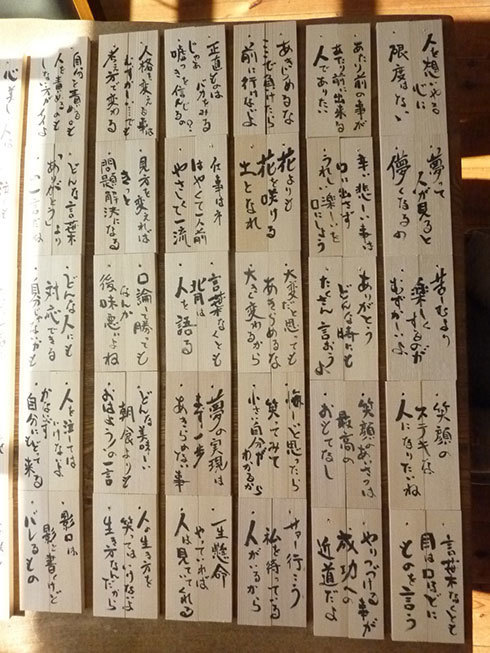 人を想いやる
心に
限度はない
あたり前の事が
あたり前に出来る
人でありたい
あきらめるな
ここで負けたら
前に行けないよ
正直ものは
バカをみる
じゃあ
嘘つきを信じるの?
人格を変える事は
考え方で変わる
人を責めるのも
しない方がイイよ
夢って
人が見ると
儚くなるの
辛い悲しい事は
口に出さず
うれしい楽しいを
口にしよう
花よりも
花を咲ける
土となれ
仕事はネ
はやくて一人前
やさしくて一流
見方を変えれば
きっと
問題解決になる
どんな言葉
より
「ありがとう」
の一言だね
楽しくするのが
むずかしいよ
ありがとう
どんな時でも
たくさん言おうよ
大変だと思っても
あきらめるな
大きく変わるから
言葉なくとも
背中は
人を語る
口論に勝っても
なんか
後味悪いよね
どんな人にも
対応できる
笑顔の
ステキな
人になりたいね
笑顔のあいさつは
最高の
おもてなし
悔しいと思ったら
笑ってみて
小さい自分が
わかるから
夢の実現は
まず一歩
あきらめない事
どんな美味しい
朝食よりも
おはようの一言
人を泣かせては
いけないよ
かならず
自分にもどって来る
言葉なくとも
目は口ほどに
ものを言う
やりつづける事が
成功への
近道だよ
サァー行こう
私を待っている
人がいるから
一生懸命
やっていれば
人は見ていてくれる
人の生き方を
笑ってはいけないよ
生き方なんだから
影口は
バレるもの